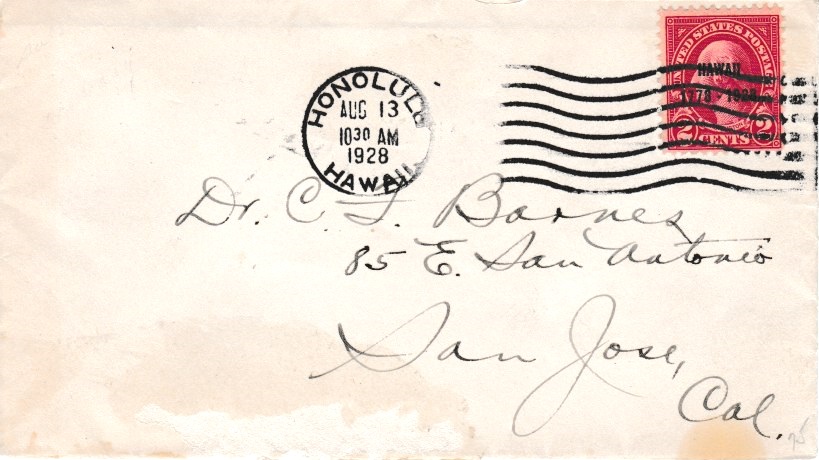 HONOLULU
AUG 13
10 30 AM
1928
HAWAII
UNITED STATES POSTAGE
HAWAII
1778 - 1928
2 CENTS 2
Dr. C L Barnes
85 E. San Antonio
San Jose,
Cal.